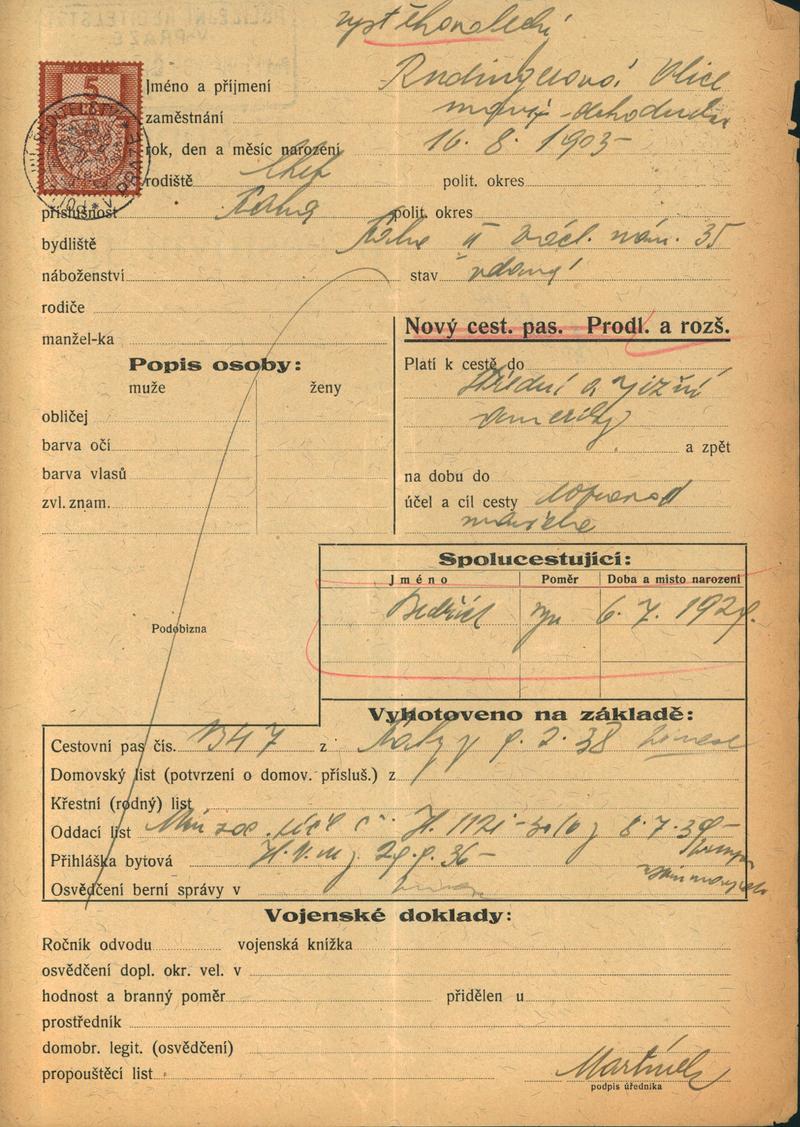 vystěhovalecké
5
Jméno a příjmení Rudingerová Alice
zaměstnání
rok, den a měsíc narození 16. 8. 1903
rodiště Cheb polit. okres
příslušnost Praha polit. okres
bydliště Praha II Václ. nám. 35
náboženství stav vdaná
rodiče
manžel-ka
Nový cest. pas. Prodl. a rozš.
Popis osoby:
muže ženy
obličej
barva očí
barva vlasů
zvl. znam.
Platí k cestě do
střední a jižní
Ameriky
a zpět
na dobu do
účel a cíl cesty doprovod
manžela
Podobizna
Spolucestující:
Jméno Poměr Doba a místo narození
Bedřich syn 6. 7. 1929.
Vyhotoveno na základě:
Cestovní pas čís. 1347 z 9. 2. 38
Domovský list (potvrzení o domov. přísluš.) z
Křestní (rodný) list
Oddací list 8. 7. 39
Přihláška bytová 36
Osvědčení berní správy v
Vojenské doklady:
Ročník odvodu vojenská knížka
osvědčení dopl. okr. vel. v
hodnost a branný poměr přidělen u
prostředník
domobr. legit. (osvědčení)
propouštěcí list
Martínek
podpis úředníka